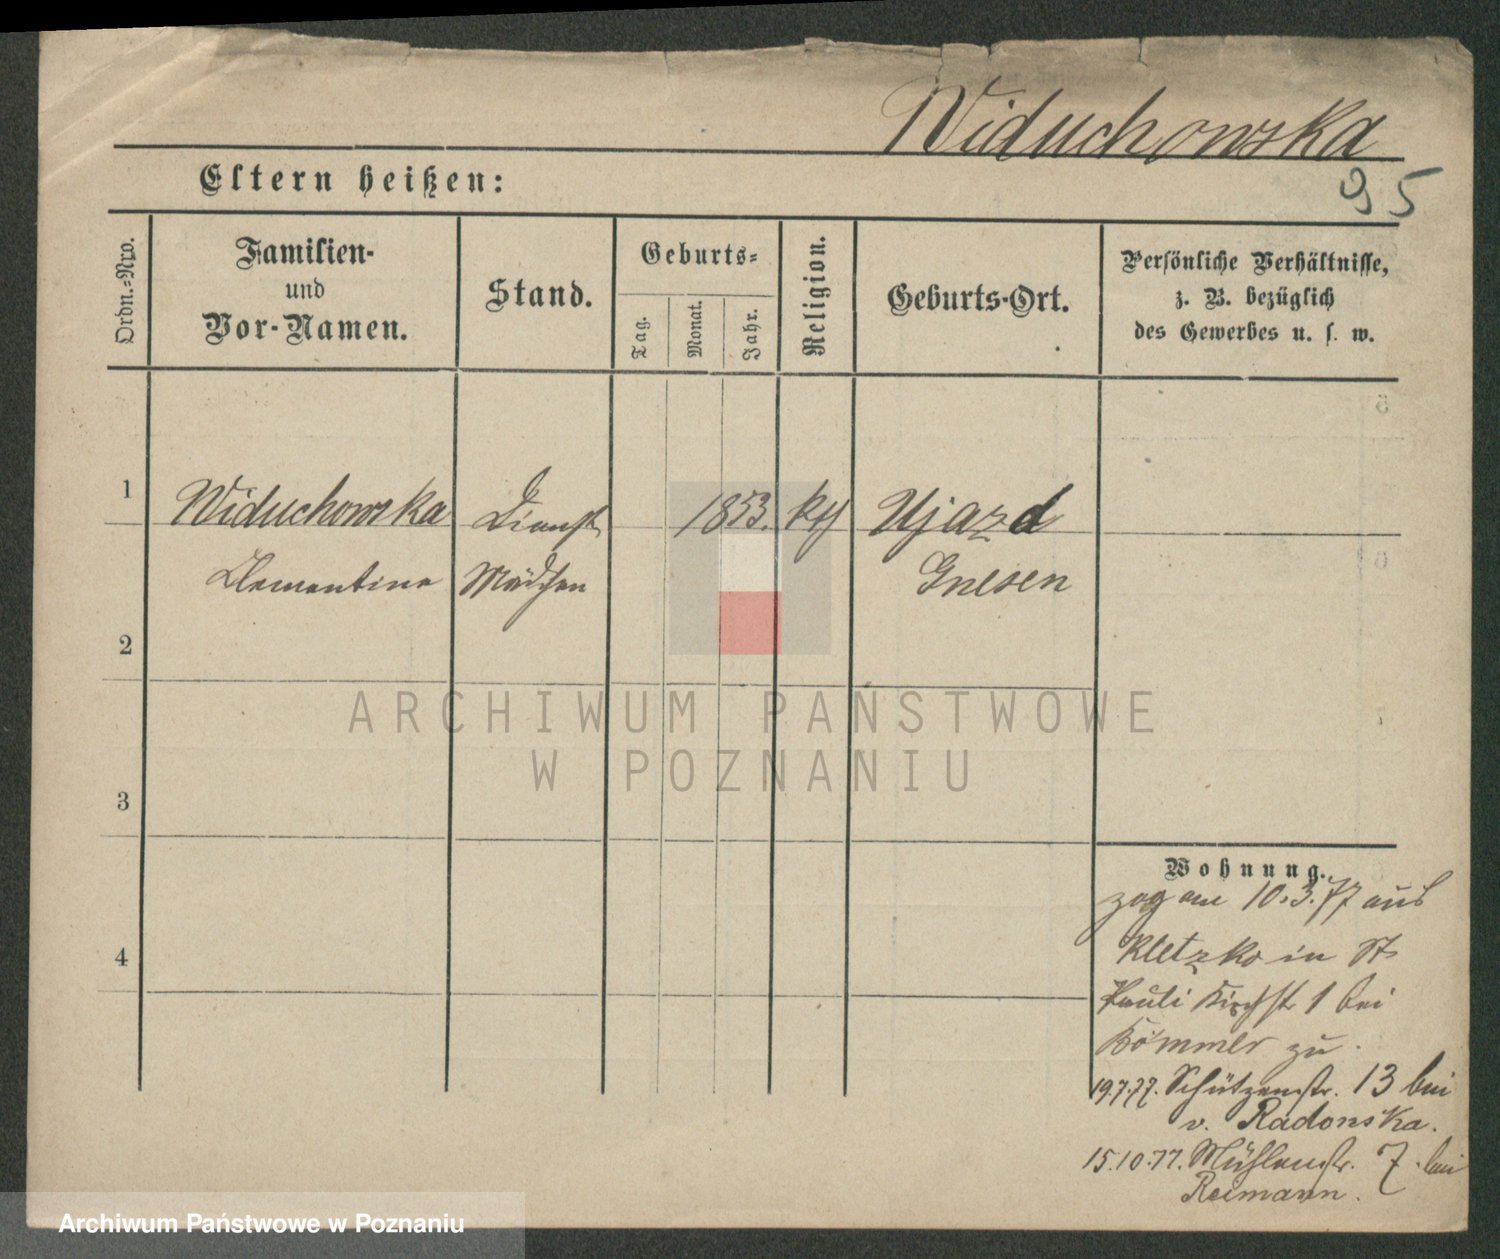 Widuchowska
95
Eltern heißen:
Ordn.-Nro.
Familien-
und
Vor-Namen.
Stand.
Geburts-
Tag.
Monat.
Jahr.
Religion.
Geburts-Ort.
Persönliche Verhältnisse,
z. B. bezüglich
des Gewerbes u. s. w.
1
Widuchowska
Dienst
1853.
kth
Ujazd
Clementine
Mädchen
Gnesen
2
3
4
ARCHIWUM PAŃSTWOWE
W POZNANIU
Wohnung.
zog am 10.3.77 aus
Kletzko in St
Pauli Kirchstr 1 bei
Kömmler zu.
19.7.77. Schützenstr. 13 bei
v. Radonska.
15.10.77. Mühlenstr. 7. bei
Reimann.
Archiwum Państwowe w Poznaniu